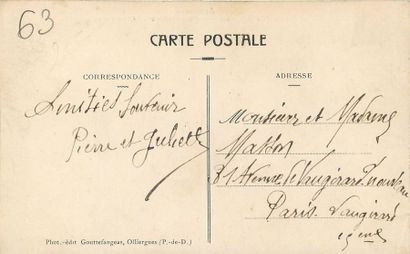 63
CARTE POSTALE
CORRESPONDANCE
Amitiés Souvenir
Pierre et Juliette
ADRESSE
Monsieur et Madame
31 Avenue de Vaugirard nouveau
Paris Vaugirard
Phot.-édit Gouttefangeas, Olliergues (P.-de-D.)